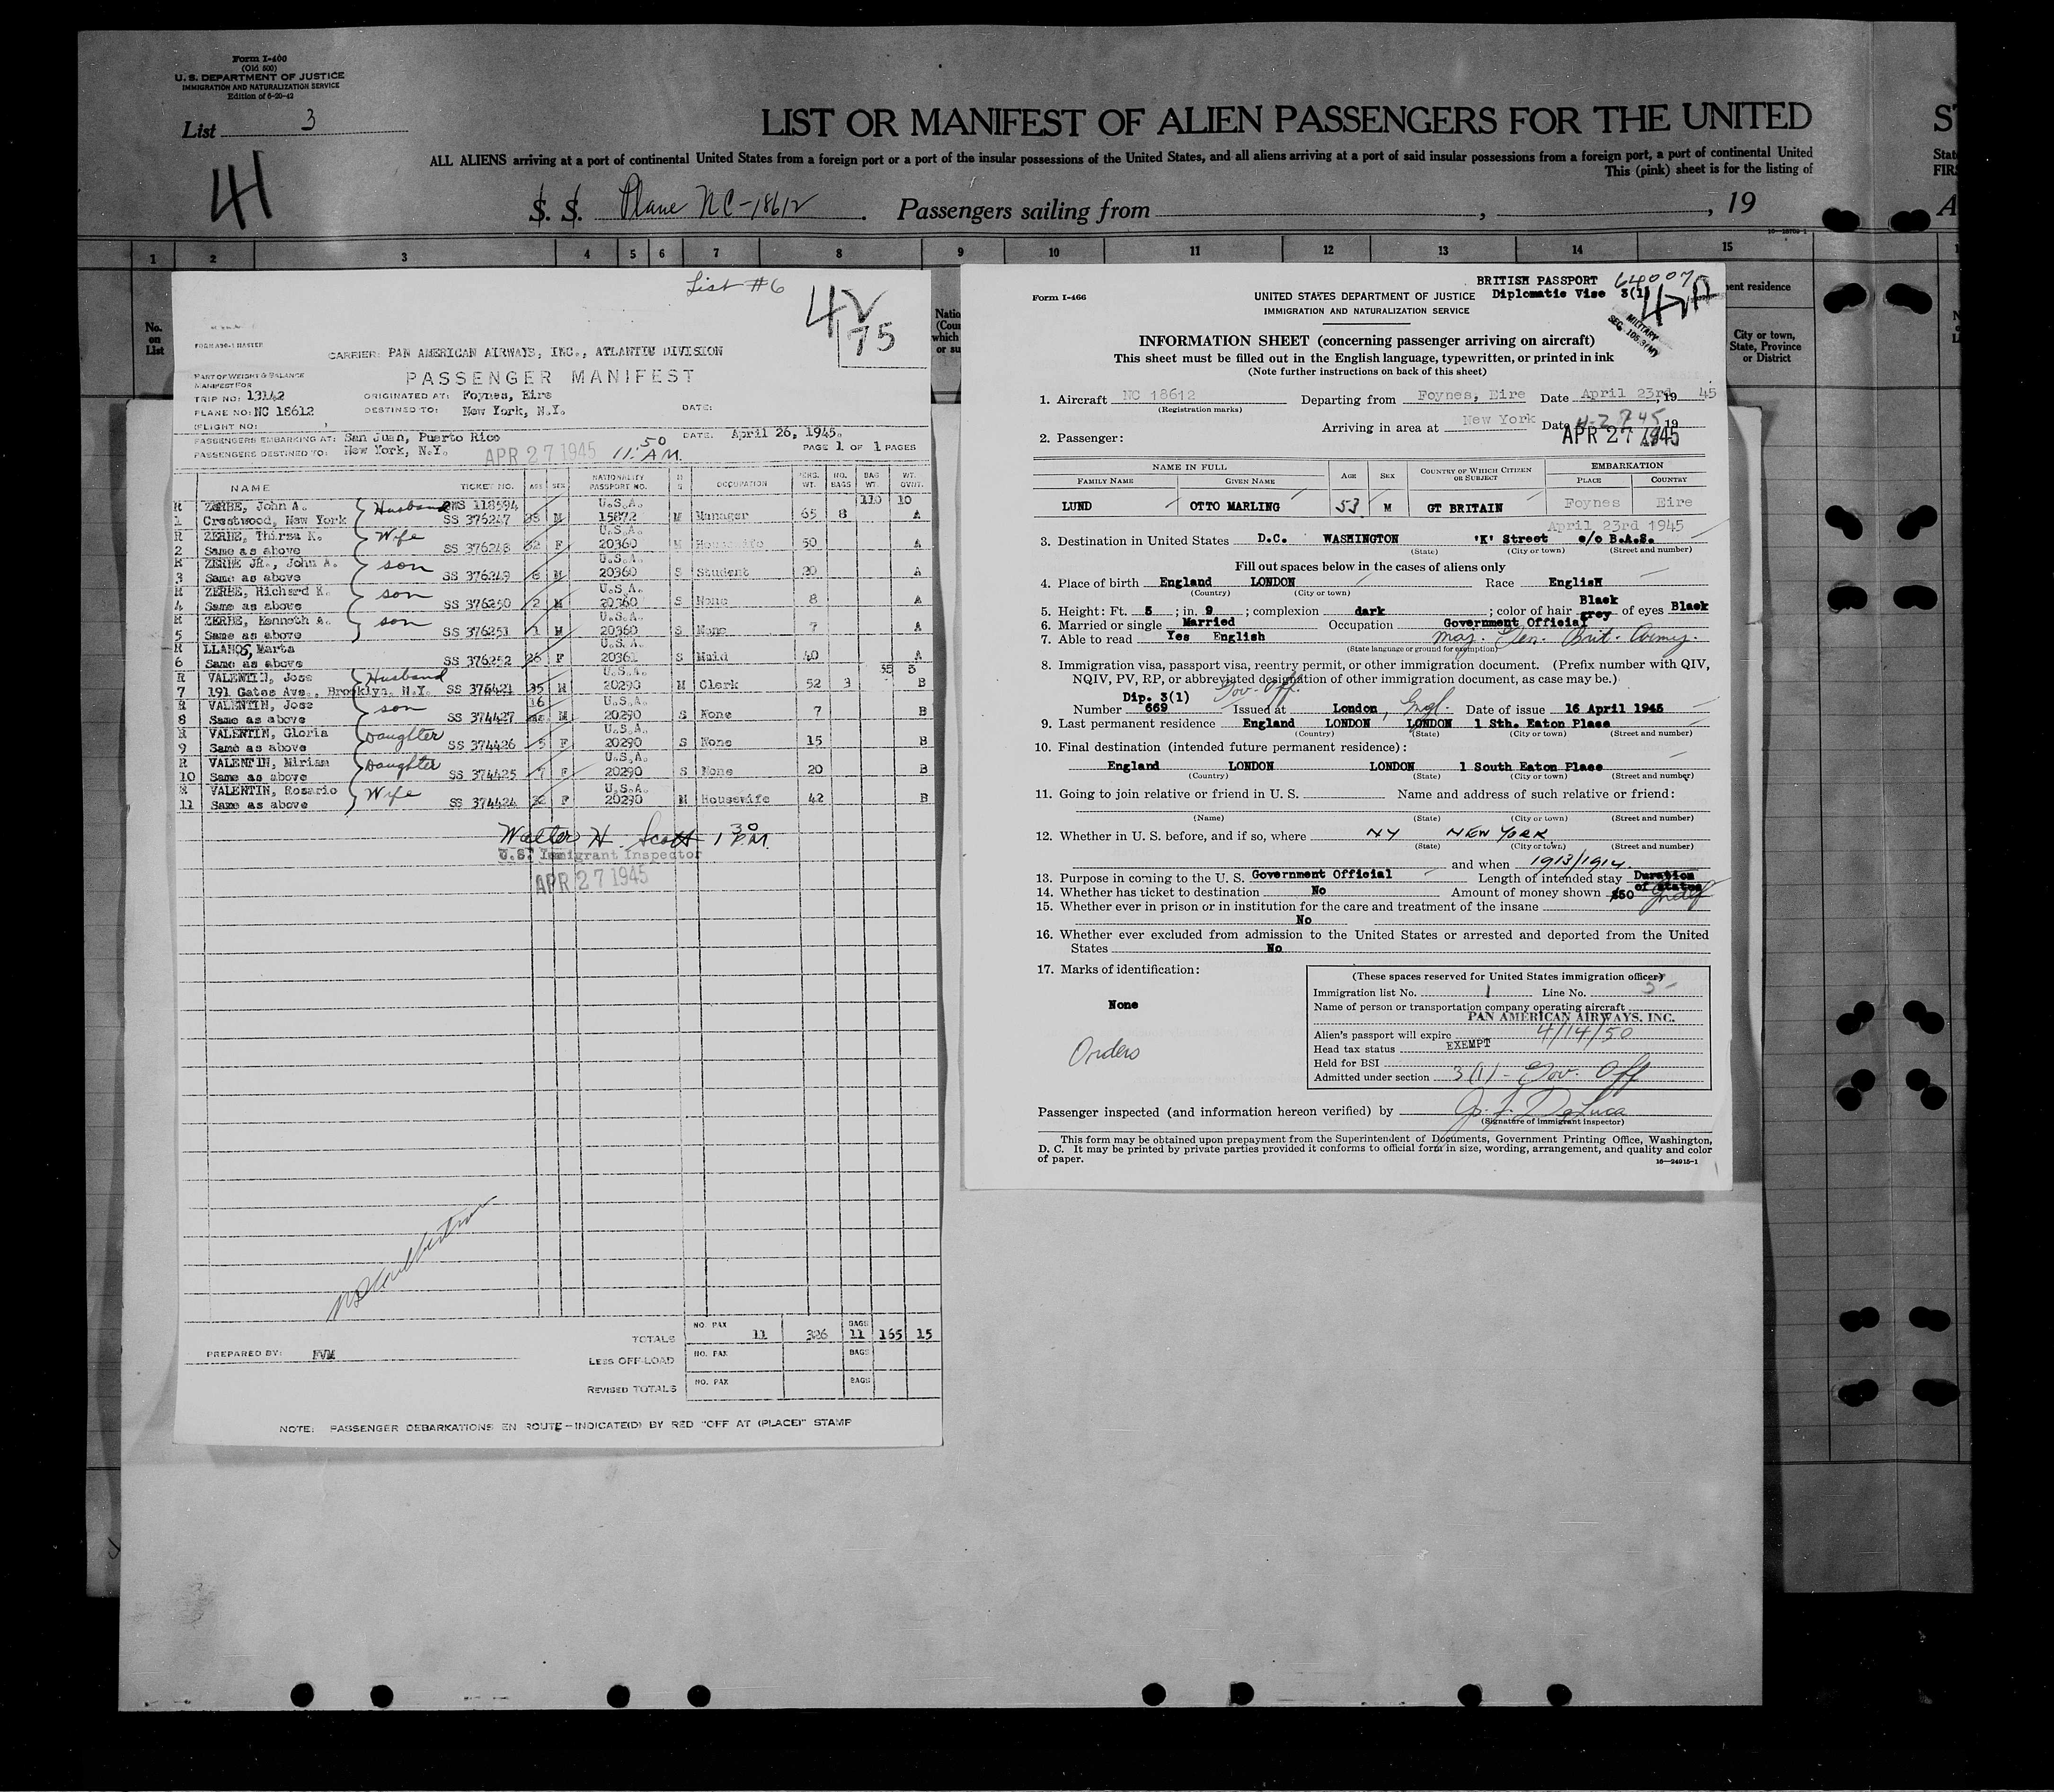 Form I-400
(Old 500)
U. S. DEPARTMENT OF JUSTICE
IMMIGRATION AND NATURALIZATION SERVICE
Edition of 6-20-42
List 3
41
LIST OR MANIFEST OF ALIEN PASSENGERS FOR THE UNITED
ALL ALIENS arriving at a port of continental United States from a foreign port or a port of the insular possessions of the United States, and all aliens arriving at a port of said insular possessions from a foreign port, a port of continental United
This (pink) sheet is for the listing of
S. S. Plane NC-18612. Passengers sailing from , , 19
1 2 3 4 5 6 7 8 9 10 11 12 13 14 15
No. on List
City or town, State, Province or District
List #6
42
75
CARRIER: PAN AMERICAN AIRWAYS, INC., ATLANTIC DIVISION
PASSENGER MANIFEST
PART OF WEIGHT & BALANCE
MANIFEST FOR
TRIP NO: 13142 ORIGINATED AT: Foynes, Eire
PLANE NO: NC 18612 DESTINED TO: New York, N.Y. DATE:
(FLIGHT NO: )
PASSENGERS EMBARKING AT: San Juan, Puerto Rico DATE: April 26, 1945.
PASSENGERS DESTINED TO: New York, N.Y. APR 27 1945 11:50 AM. PAGE 1 OF 1 PAGES
NAME TICKET NO. AGE SEX NATIONALITY PASSPORT NO. OCCUPATION PERS. WT. NO. BAGS BAG WT WT. OVWT.
110 10
R ZERBE, John A. Husband 118594 U.S.A.
1 Crestwood, New York SS 376247 M 15872 M Manager 65 8 A
R ZERBE, Thirza K. Wife U.S.A.
2 Same as above SS 376248 F 20360 M Housewife 50 A
R ZERBE JR., John A. son U.S.A.
3 Same as above SS 376249 M 20360 S Student A
R ZERBE, Richard K. son U.S.A.
4 Same as above SS 376250 2 M 20360 S None 8 A
R ZERBE, Kenneth A. son U.S.A.
5 Same as above SS 376251 1 M 20360 S None 7 A
R LLANOS, Marta U.S.A.
6 Same as above SS 376252 26 F 20361 S Maid 40 A
55 5
R VALENTIN, Jose Husband U.S.A.
7 191 Gates Ave., Brooklyn, N.Y. SS 376421 35 M 20290 M Clerk 52 3 B
R VALENTIN, Jose son 16 U.S.A.
8 Same as above SS 374427 M 20290 S None 7 B
R VALENTIN, Gloria Daughter U.S.A.
9 Same as above SS 374426 5 F 20290 S None 15 B
R VALENTIN, Miriam Daughter U.S.A.
10 Same as above SS 374425 7 F 20290 S None 20 B
R VALENTIN, Rosario Wife U.S.A.
11 Same as above SS 374424 F 20290 M Housewife 42 B
Walter H. Scott 1 30 P.M.
U.S. Immigrant Inspector
APR 27 1945
TOTALS NO. PAX 11 326 BAGS 11 165 15
PREPARED BY: FVM
LESS OFF-LOAD NO. PAX BAGS
REVISED TOTALS NO. PAX BAGS
NOTE: PASSENGER DEBARKATIONS EN ROUTE—INDICATE(D) BY RED "OFF AT (PLACE)" STAMP
BRITISH PASSPORT 64007
Diplomatic Vise 3(1)
Form I-466
UNITED STATES DEPARTMENT OF JUSTICE
IMMIGRATION AND NATURALIZATION SERVICE
MILITARY
INFORMATION SHEET (concerning passenger arriving on aircraft)
This sheet must be filled out in the English language, typewritten, or printed in ink
(Note further instructions on back of this sheet)
1. Aircraft NC 18612 Departing from Foynes, Eire Date April 23rd, 19 45
(Registration marks)
Arriving in area at New York Date 19
APR 27 1945
2. Passenger:
NAME IN FULL AGE SEX COUNTRY OF WHICH CITIZEN OR SUBJECT EMBARKATION
FAMILY NAME GIVEN NAME PLACE COUNTRY
LUND OTTO MARLING 53 M GT BRITAIN Foynes Eire
April 23rd 1945
3. Destination in United States D.C. WASHINGTON 'K' Street c/o B.A.S.
(State) (City or town) (Street and number)
Fill out spaces below in the cases of aliens only
4. Place of birth England LONDON Race English
(Country) (City or town)
5. Height: Ft. 5 ; in. 9 ; complexion dark ; color of hair Black grey of eyes Black
6. Married or single Married Occupation Government Official
7. Able to read Yes English Maj. Gen. Brit. Army.
(State language or ground for exemption)
8. Immigration visa, passport visa, reentry permit, or other immigration document. (Prefix number with QIV,
NQIV, PV, RP, or abbreviated designation of other immigration document, as case may be.)
Dip. 3(1) Gov. Off.
Number 669 Issued at London, Engl. Date of issue 16 April 1945
9. Last permanent residence England LONDON LONDON 1 Sth. Eaton Place
(Country) (State) (City or town) (Street and number)
10. Final destination (intended future permanent residence):
England LONDON LONDON 1 South Eaton Place
(Country) (State) (City or town) (Street and number)
11. Going to join relative or friend in U. S. Name and address of such relative or friend:
(Name) (State) (City or town) (Street and number)
12. Whether in U. S. before, and if so, where NY NEW YORK
(State) (City or town) (Street and number)
and when 1913/1914
13. Purpose in coming to the U. S. Government Official Length of intended stay Duration of status
14. Whether has ticket to destination No Amount of money shown $50 Indef
15. Whether ever in prison or in institution for the care and treatment of the insane
No
16. Whether ever excluded from admission to the United States or arrested and deported from the United
States No
17. Marks of identification:
None
Orders
(These spaces reserved for United States immigration officer)
Immigration list No. 1 Line No. 5
Name of person or transportation company operating aircraft
PAN AMERICAN AIRWAYS, INC.
Alien's passport will expire 4/14/50
Head tax status EXEMPT
Held for BSI
Admitted under section 3(1) - Gov. Off
Passenger inspected (and information hereon verified) by DeLuca
(Signature of immigrant inspector)
This form may be obtained upon prepayment from the Superintendent of Documents, Government Printing Office, Washington,
D. C. It may be printed by private parties provided it conforms to official form in size, wording, arrangement, and quality and color
of paper.
16—24915-1